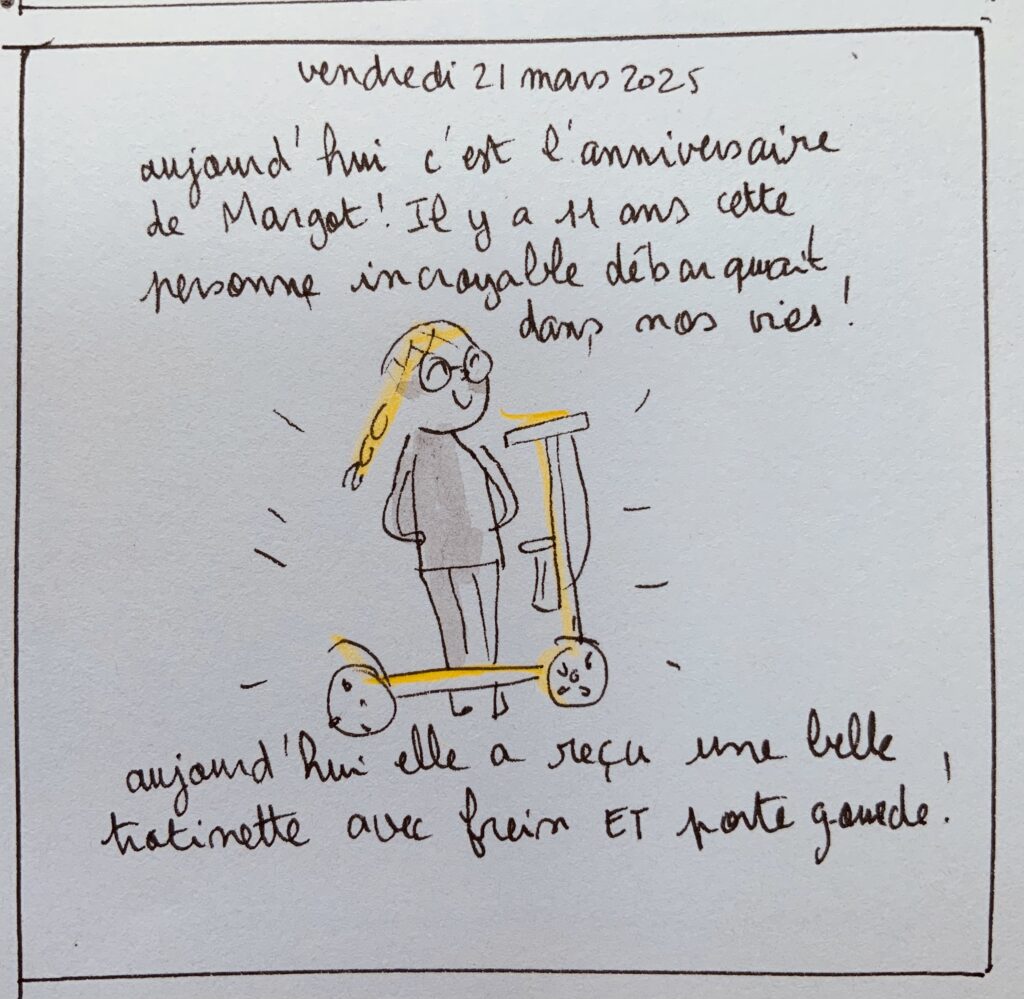 vendredi 21 mars 2025
aujourd'hui c'est l'anniversaire
de Margot! Il y a 11 ans cette
personne incroyable débarquait
dans nos vies!
aujourd'hui elle a reçu une belle
trotinette avec frein ET porte gourde!